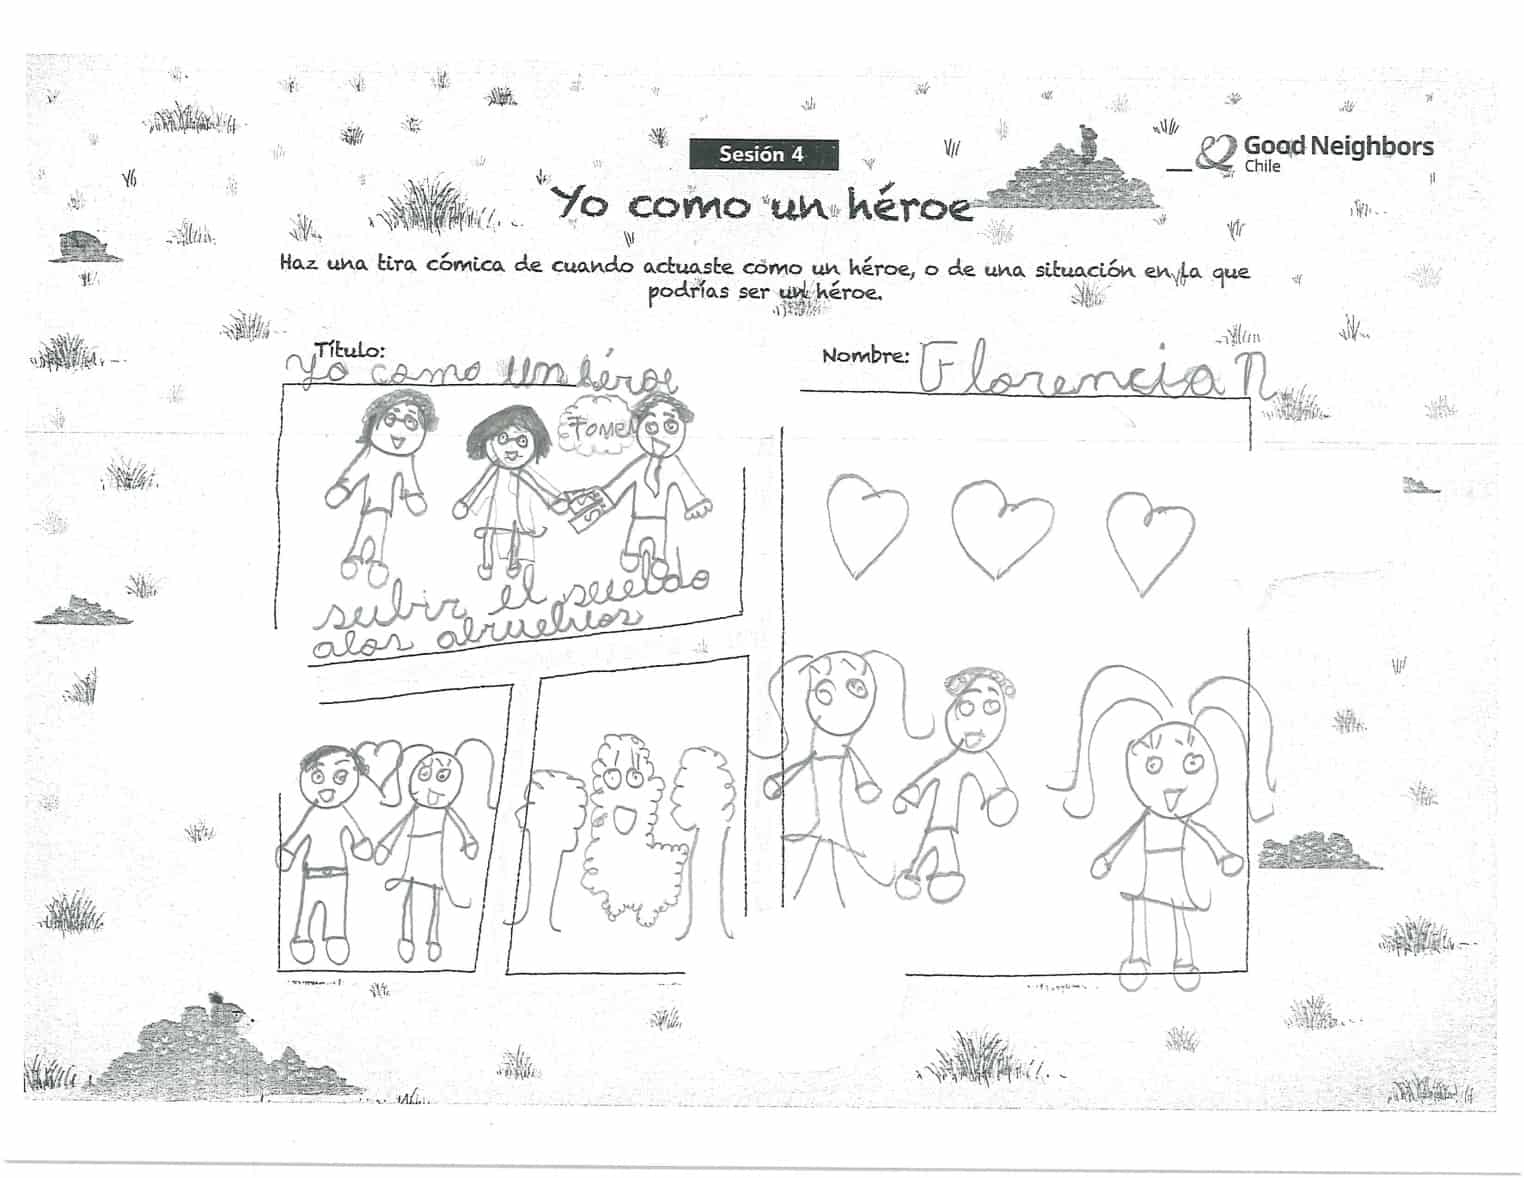 Sesión 4
Good Neighbors
Chile
Yo como un héroe
Haz una tira cómica de cuando actuaste como un héroe, o de una situación en la que
podrías ser un héroe.
Título:
Yo como un héroe
Nombre: Florencia N
Tomen
subir el sueldo
alos abuelitos